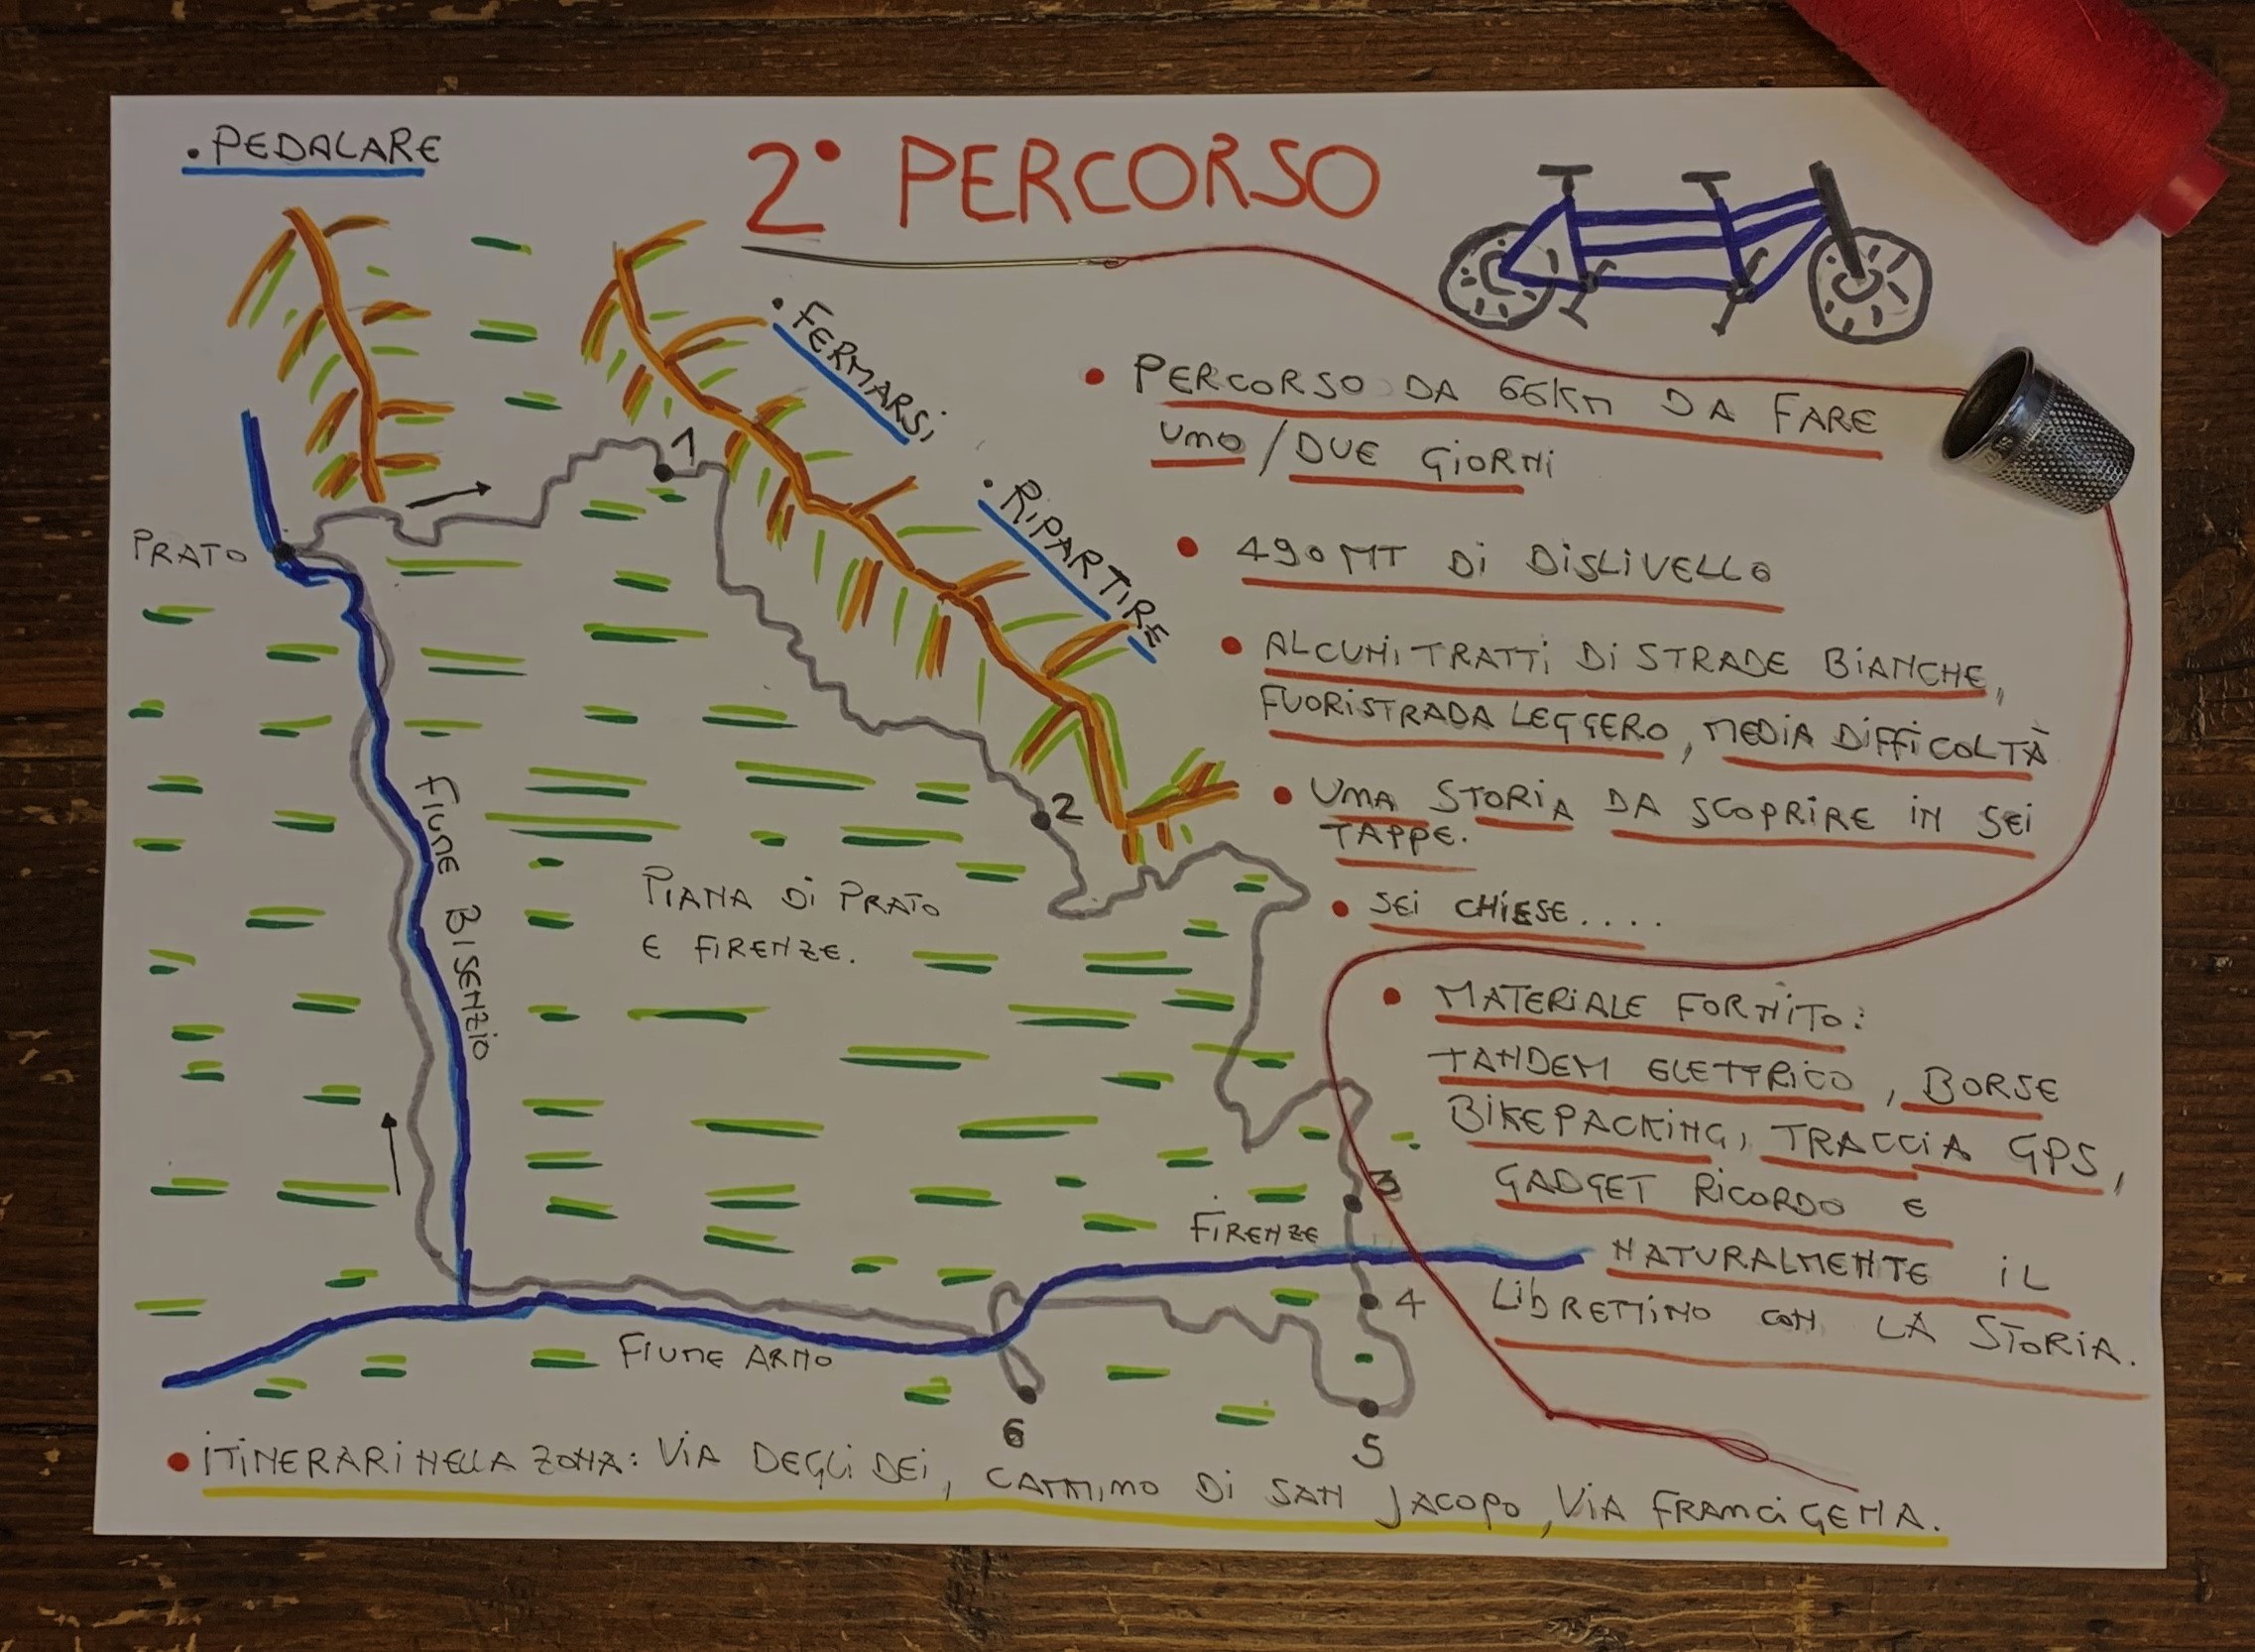 • PEDALARE
2° PERCORSO
• FERMARSI
• RIPARTIRE
• PERCORSO DA 66Km DA FARE
UNO / DUE GIORNI
• 490 MT DI DISLIVELLO
• ALCUNI TRATTI DI STRADE BIANCHE,
FUORISTRADA LEGGERO, MEDIA DIFFICOLTÀ
• UNA STORIA DA SCOPRIRE IN SEI
TAPPE.
• SEI CHIESE....
• MATERIALE FORNITO:
TANDEM ELETTRICO, BORSE
BIKEPACKING, TRACCIA GPS,
GADGET RICORDO E
NATURALMENTE IL
LIBRETTINO CON LA STORIA.
PRATO
1
2
FIUME BISENZIO
PIANA DI PRATO
E FIRENZE.
3
FIRENZE
4
FIUME ARNO
6
5
• ITINERARI NELLA ZONA: VIA DEGLI DEI, CAMMINO DI SAN JACOPO, VIA FRANCIGENA.